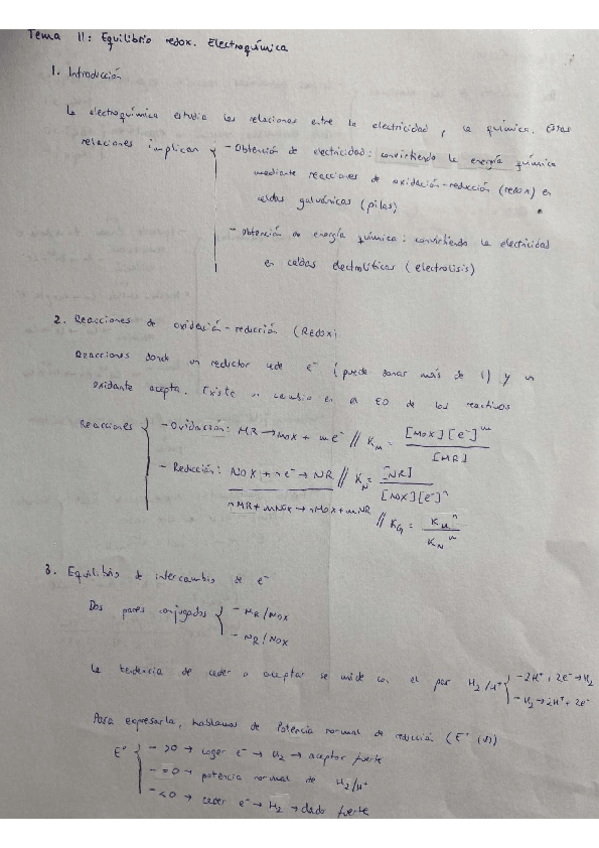 Tema 11: Equilibrio redox. Electroquímica
1. Introducción
La electroquímica estudia las relaciones entre la electricidad y la química. Estas
relaciones implican { - Obtención de electricidad: convirtiendo la energía química
mediante reacciones de oxidación-reducción (redox) en
celdas galvánicas (pilas)
- Obtención de energía química: convirtiendo la electricidad
en celdas electrolíticas (electrolisis)
2. Reacciones de oxidación-reducción (Redox)
Reacciones donde un reductor cede e⁻ (puede donar más de 1) y un
oxidante acepta. Existe un cambio en el EO de los reactivos
Reacciones { - Oxidación: MR → MOX + me⁻ // K_M = [MOX][e⁻]^m / [MR]
- Reducción: NOX + ne⁻ → NR // K_N = [NR] / [NOX][e⁻]^n
nMR + mNOX → nMOX + mNR // K_G = K_M^n / K_N^m
3. Equilibrio de intercambio de e⁻
Dos pares conjugados { - MR/MOX
- NR/NOX
La tendencia de ceder o aceptar se mide con el par H₂/H⁺ { - 2H⁺ + 2e⁻ → H₂
- H₂ → 2H⁺ + 2e⁻
Para expresarla, hablamos de Potencia normal de reducción (E° (V))
E° { - >0 → coger e⁻ → H₂ → aceptor fuerte
- =0 → potencia normal de H₂/H⁺
- <0 → ceder e⁻ → H₂ → dado fuerte